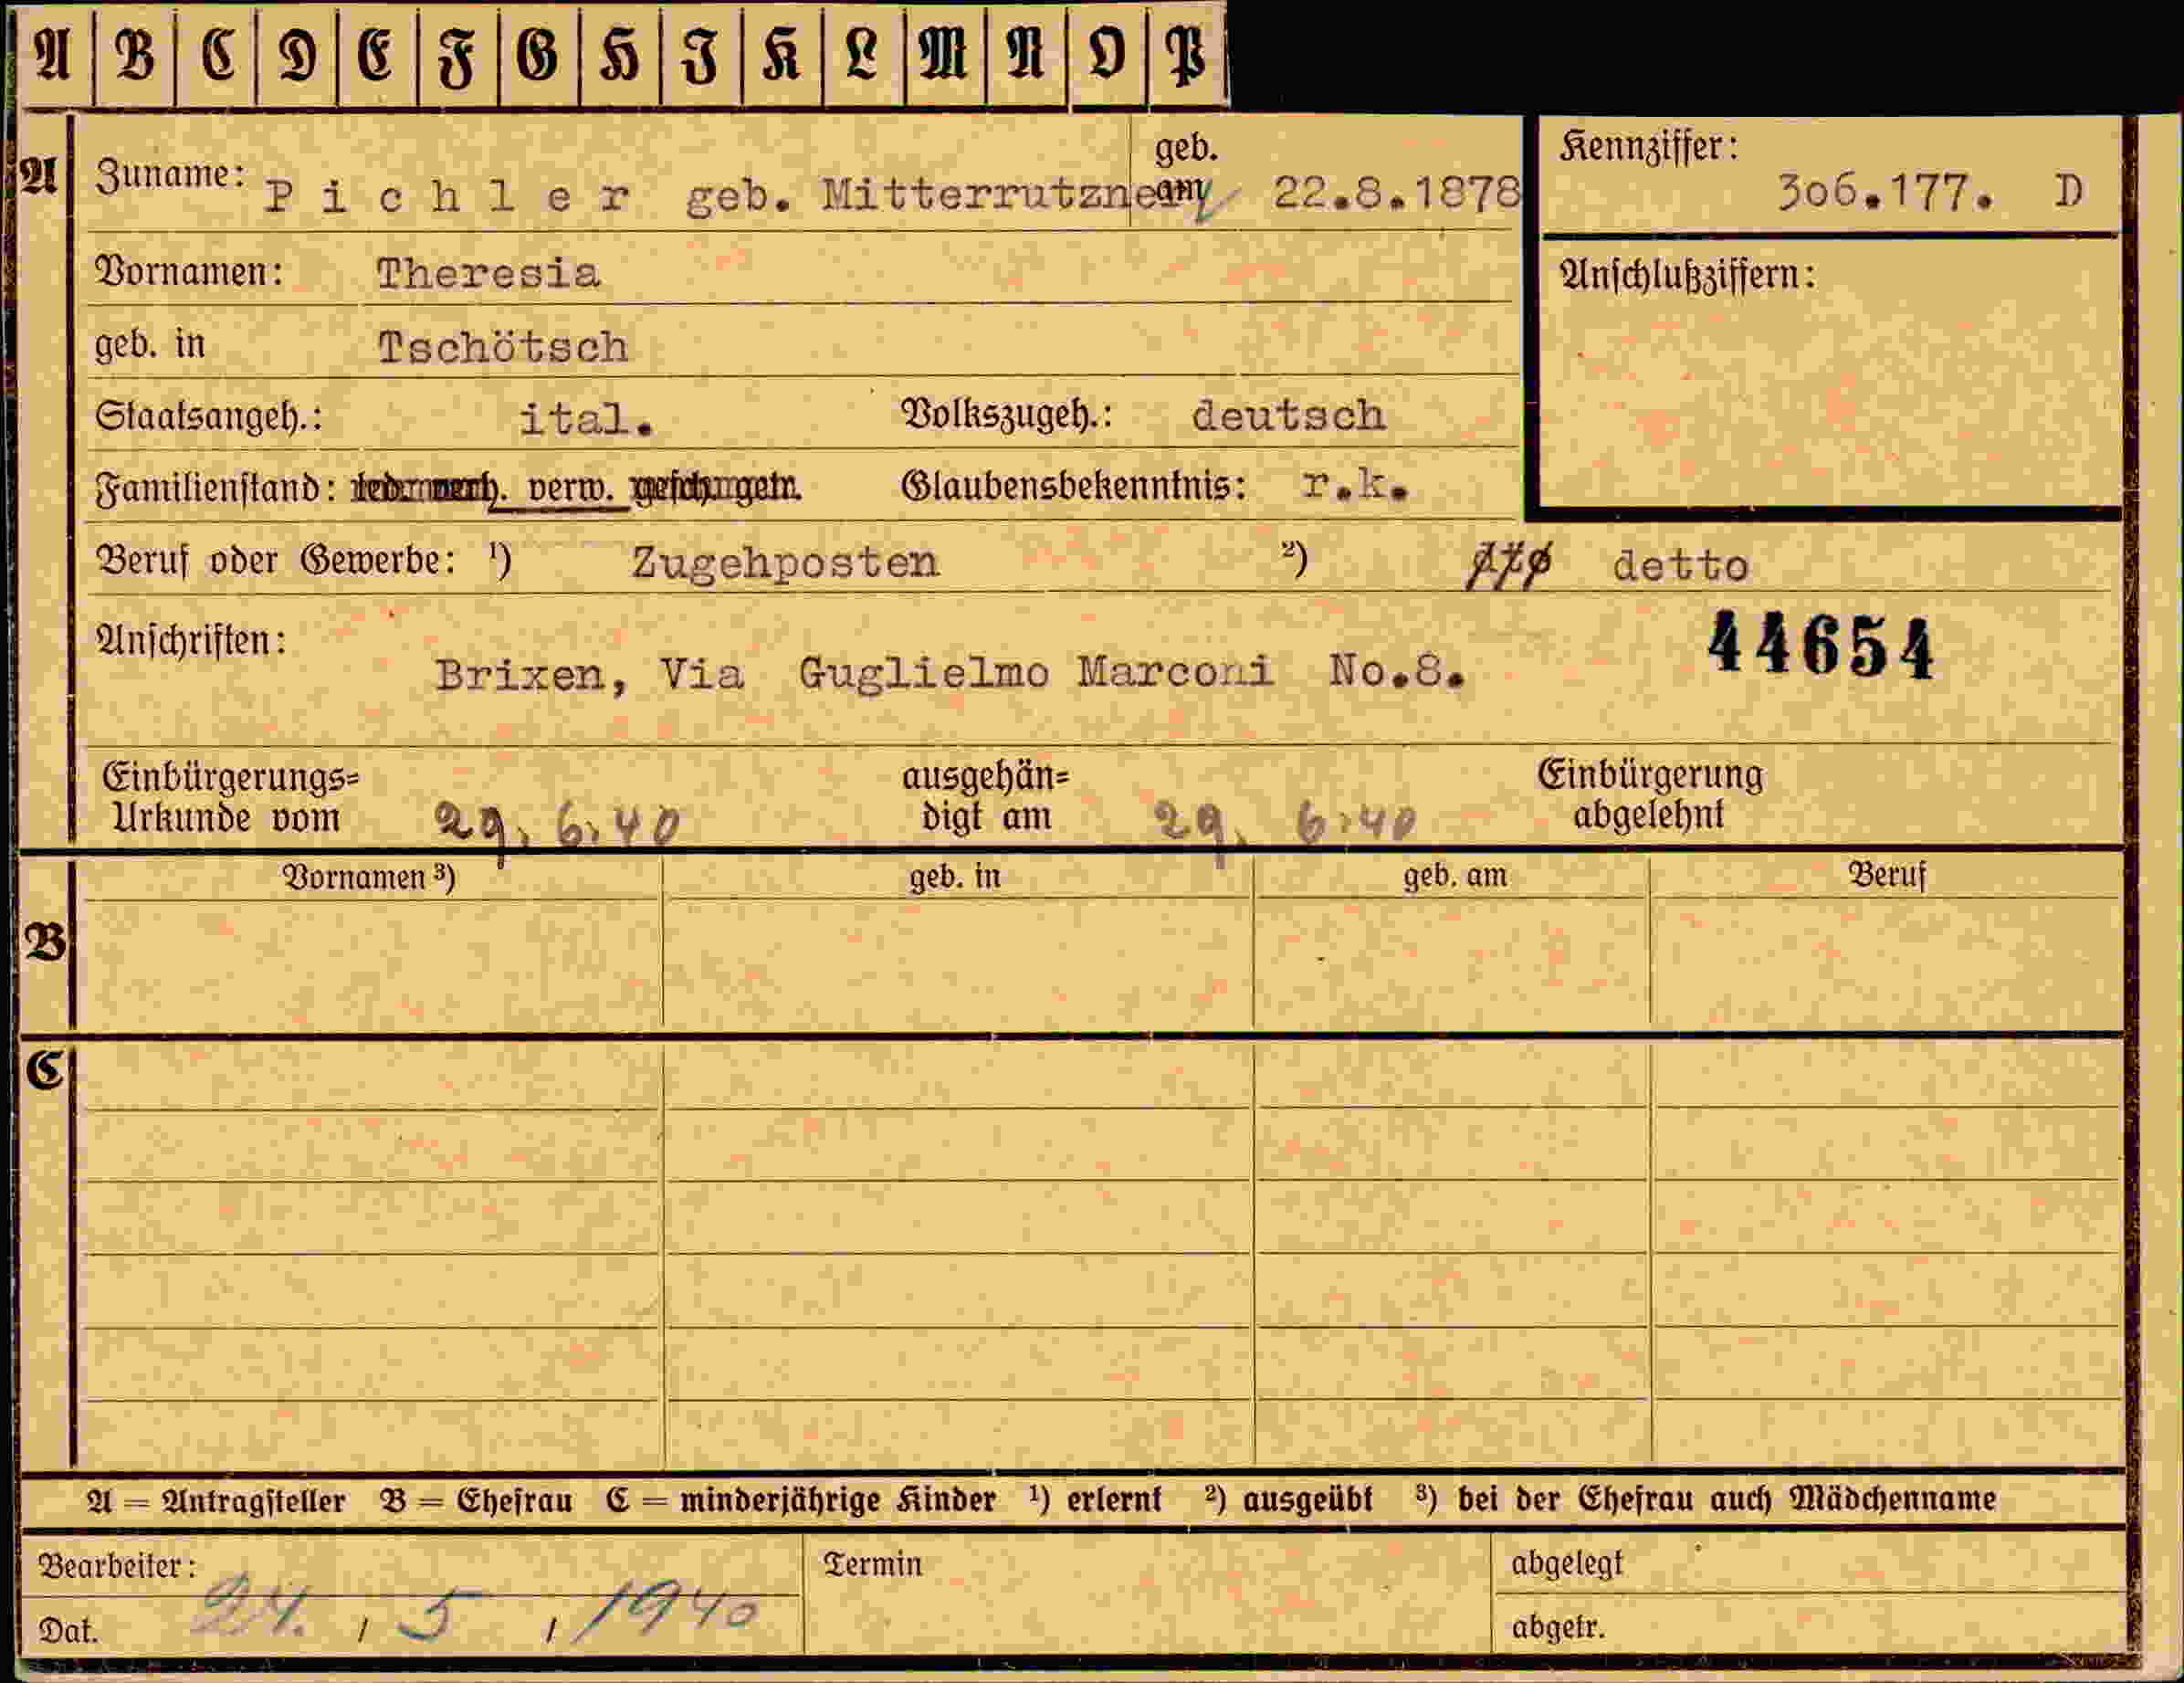 A B C D E F G H I K L M N O P
A Zuname: Pichler geb. Mitterrutzner geb. am 22.8.1878 Kennziffer: 306.177. D
Vornamen: Theresia Anschlußziffern:
geb. in Tschötsch
Staatsangeh.: ital. Volkszugeh.: deutsch
Familienstand: led. verh. verw. gesch. getr. Glaubensbekenntnis: r.k.
Beruf oder Gewerbe: ¹) Zugehposten ²) detto
Anschriften: 44654
Brixen, Via Guglielmo Marconi No.8.
Einbürgerungs= ausgehän= Einbürgerung
Urkunde vom 29. 6. 40 digt am 29. 6. 40 abgelehnt
Vornamen ³) geb. in geb. am Beruf
B
C
A = Antragsteller B = Ehefrau C = minderjährige Kinder ¹) erlernt ²) ausgeübt ³) bei der Ehefrau auch Mädchenname
Bearbeiter: Termin abgelegt
Dat. 24. / 5 / 1940 abgetr.